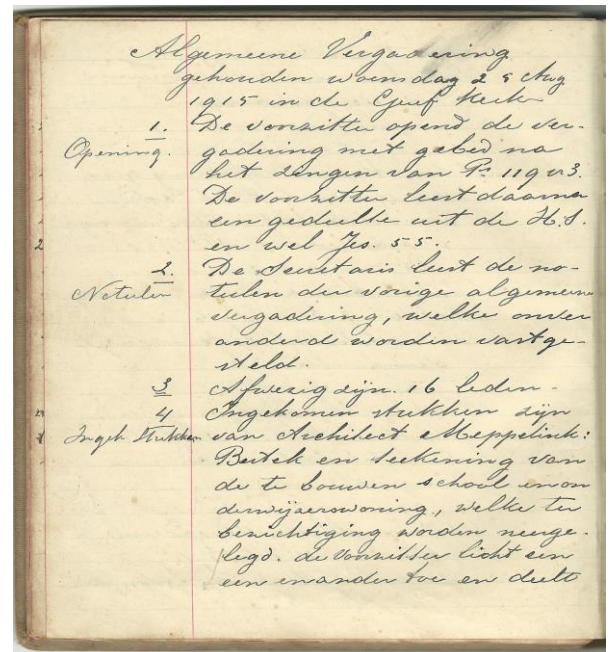 Algemeene Vergadering
gehouden woensdag 25 Aug
1915 in de Geref Kerk
1. De voorzitter opend de ver-
Opening. gadering met gebed na
het zingen van Ps 119 v 3.
De voorzitter leest daarna
een gedeelte uit de H.S.
en wel Jes. 55.
2. De Secretaris leest de no-
Notulen tulen der vorige algemeene
vergadering, welke onver
anderd worden vastge-
steld.
3 Afwezig zijn. 16 leden.
4 Ingekomen stukken zijn
Ingek Stukken van Architect Meppelink:
Bestek en teekening van
de te bouwen school en on
derwijzerswoning, welke ter
bezichtiging worden neerge-
legd. de Voorzitter licht een
een en ander toe en deelt